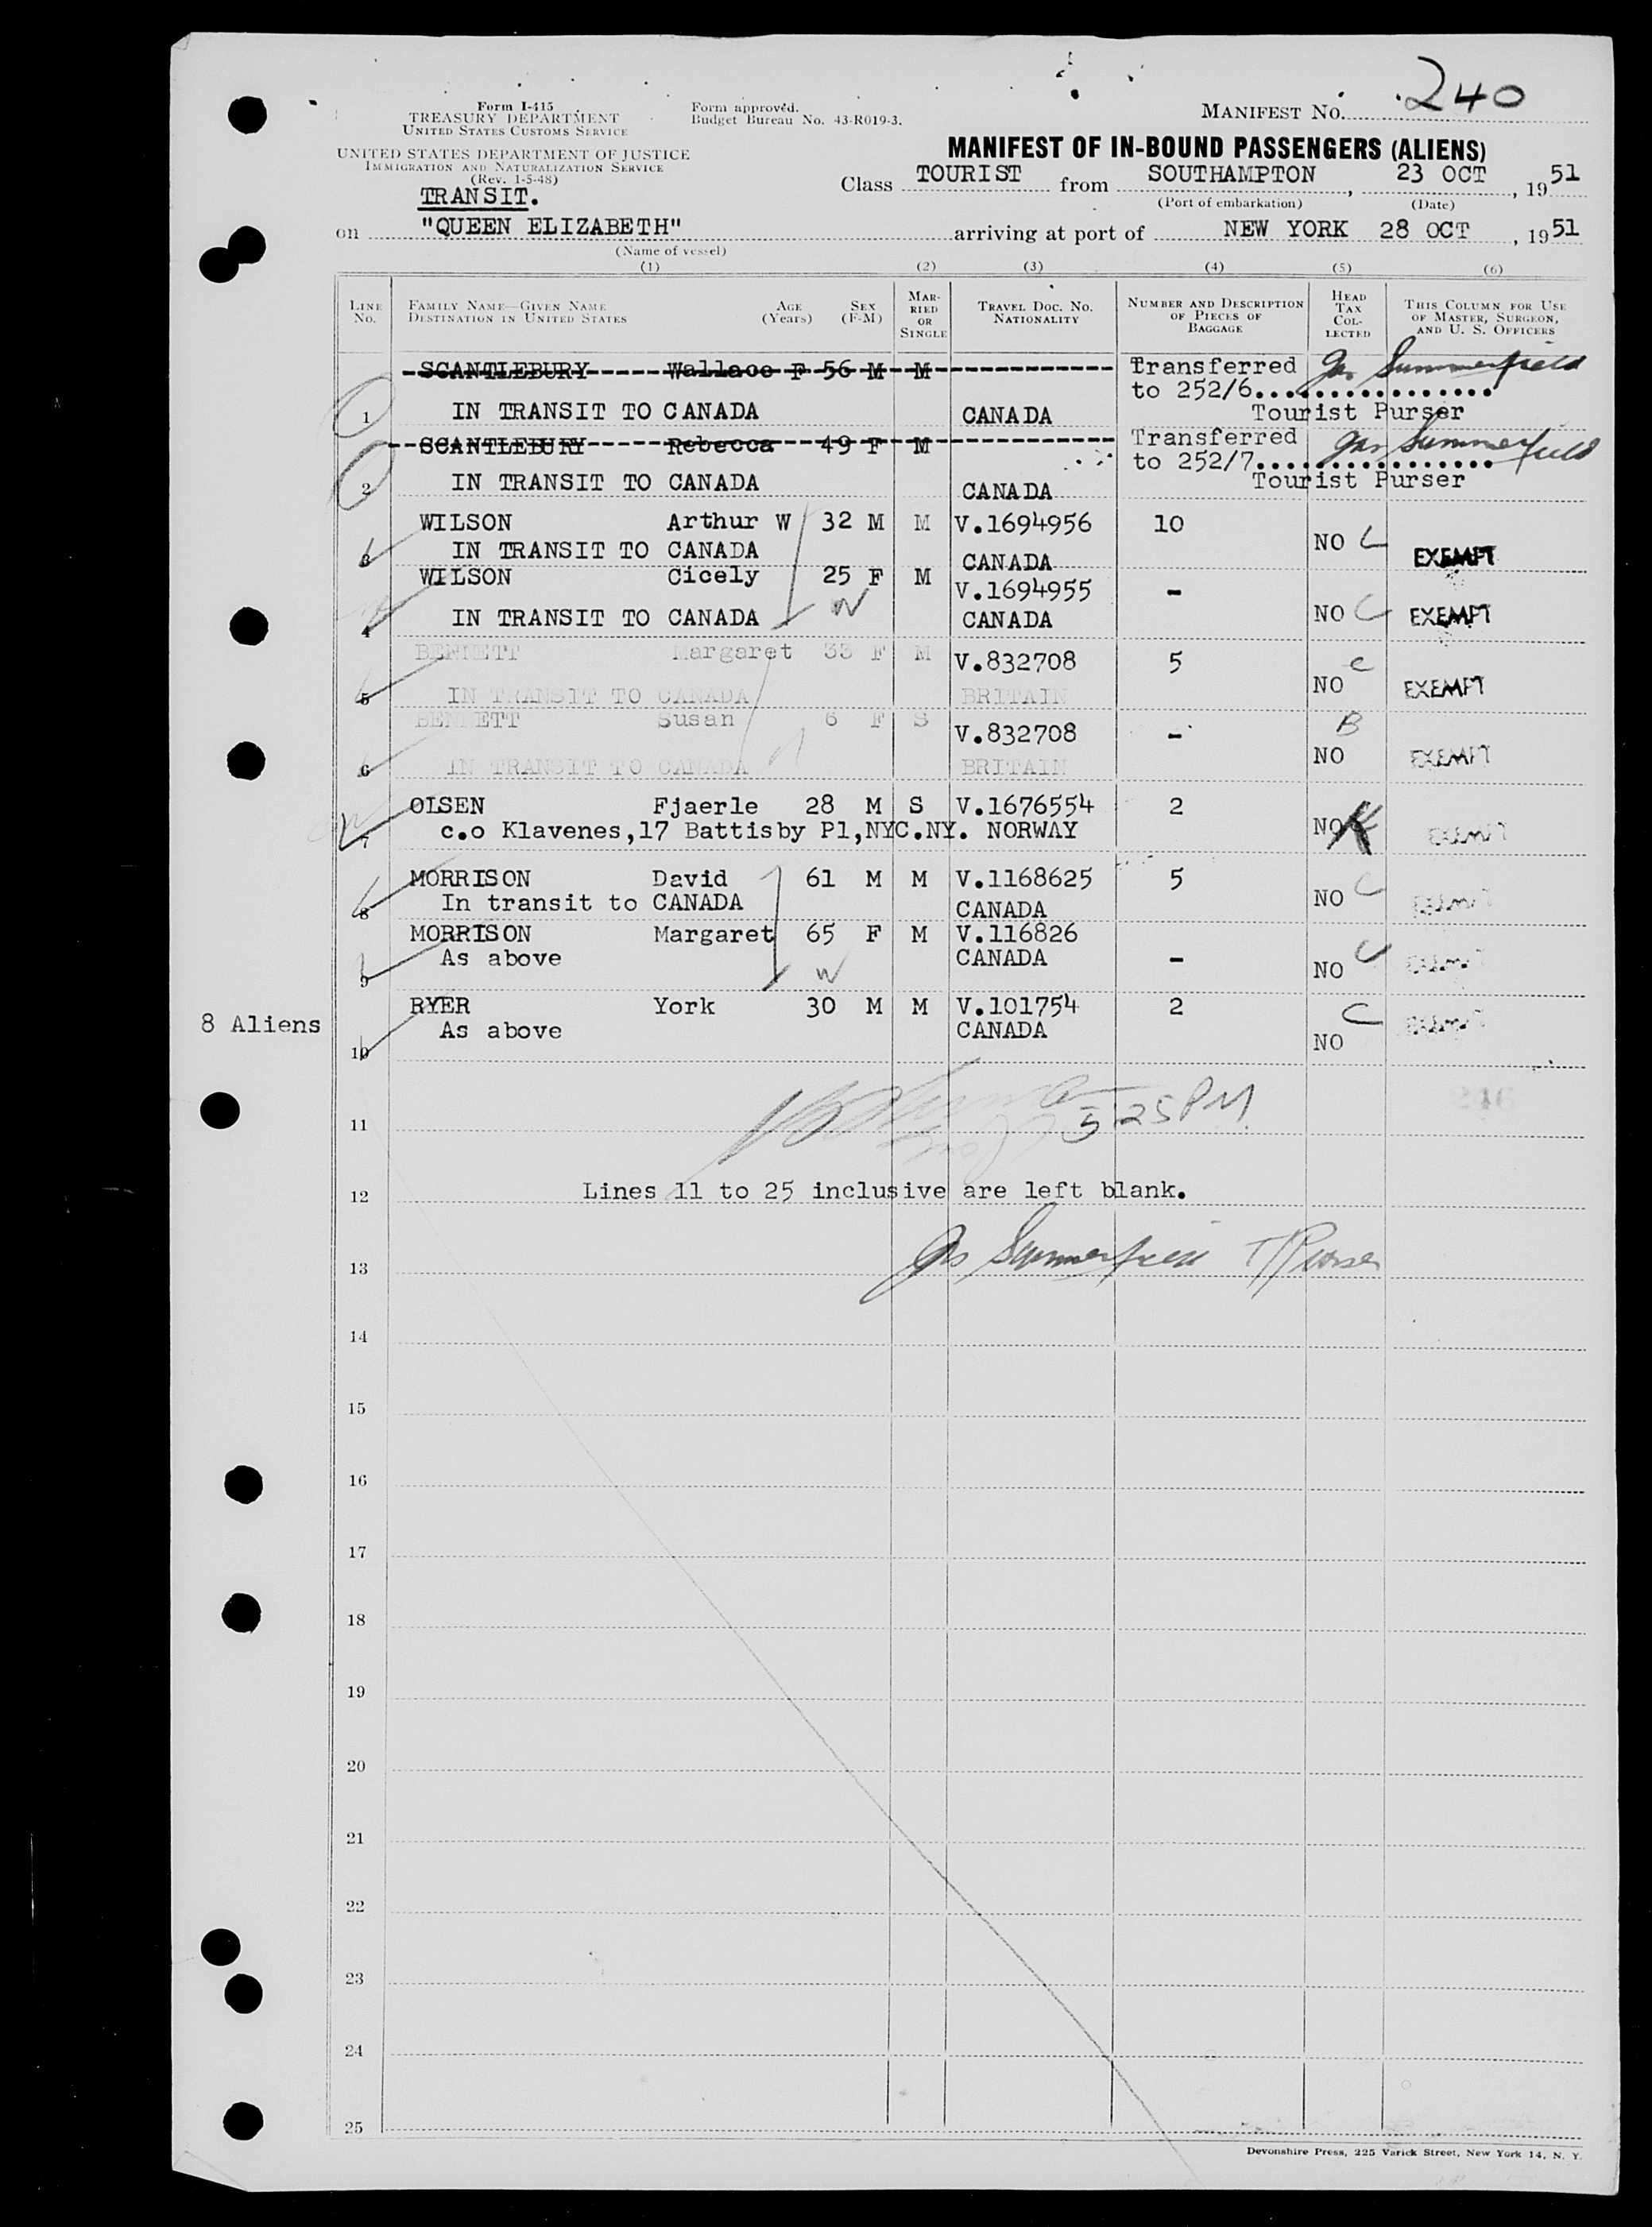 240
Form I-415
TREASURY DEPARTMENT
UNITED STATES CUSTOMS SERVICE
Form approved.
Budget Bureau No. 43-R019-3.
MANIFEST NO.
UNITED STATES DEPARTMENT OF JUSTICE
IMMIGRATION AND NATURALIZATION SERVICE
(Rev. 1-5-48)
MANIFEST OF IN-BOUND PASSENGERS (ALIENS)
Class TOURIST from SOUTHAMPTON, 23 OCT, 1951
(Port of embarkation) (Date)
TRANSIT.
on "QUEEN ELIZABETH" arriving at port of NEW YORK 28 OCT, 1951
(Name of vessel)
(1) (2) (3) (4) (5) (6)
LINE NO. FAMILY NAME—GIVEN NAME DESTINATION IN UNITED STATES AGE (Years) SEX (F-M) MARRIED OR SINGLE TRAVEL DOC. NO. NATIONALITY NUMBER AND DESCRIPTION OF PIECES OF BAGGAGE HEAD TAX COLLECTED THIS COLUMN FOR USE OF MASTER, SURGEON, AND U. S. OFFICERS
SCANTLEBURY Wallace F 56 M M Transferred Summerfield
to 252/6
1 IN TRANSIT TO CANADA CANADA Tourist Purser
SCANTLEBURY Rebecca 49 F M Transferred Summerfield
to 252/7
2 IN TRANSIT TO CANADA CANADA Tourist Purser
WILSON Arthur W 32 M M V.1694956 10
3 IN TRANSIT TO CANADA CANADA NO C EXEMPT
WILSON Cicely 25 F M V.1694955 -
4 IN TRANSIT TO CANADA CANADA NO C EXEMPT
BENNETT Margaret 33 F M V.832708 5 C
5 IN TRANSIT TO CANADA BRITAIN NO EXEMPT
BENNETT Susan 6 F S V.832708 - B
6 IN TRANSIT TO CANADA BRITAIN NO EXEMPT
OLSEN Fjaerle 28 M S V.1676554 2
7 c.o Klavenes,17 Battisby Pl,NYC.NY. NORWAY NO EXEMPT
MORRISON David 61 M M V.1168625 5
8 In transit to CANADA CANADA NO C EXEMPT
MORRISON Margaret 65 F M V.116826
9 As above CANADA - NO C EXEMPT
RYER York 30 M M V.101754 2 C
8 Aliens
10 As above CANADA NO EXEMPT
11 5 25 PM
12 Lines 11 to 25 inclusive are left blank.
13 Summerfield T/Purser
14
15
16
17
18
19
20
21
22
23
24
25
Devonshire Press, 225 Varick Street, New York 14, N. Y.